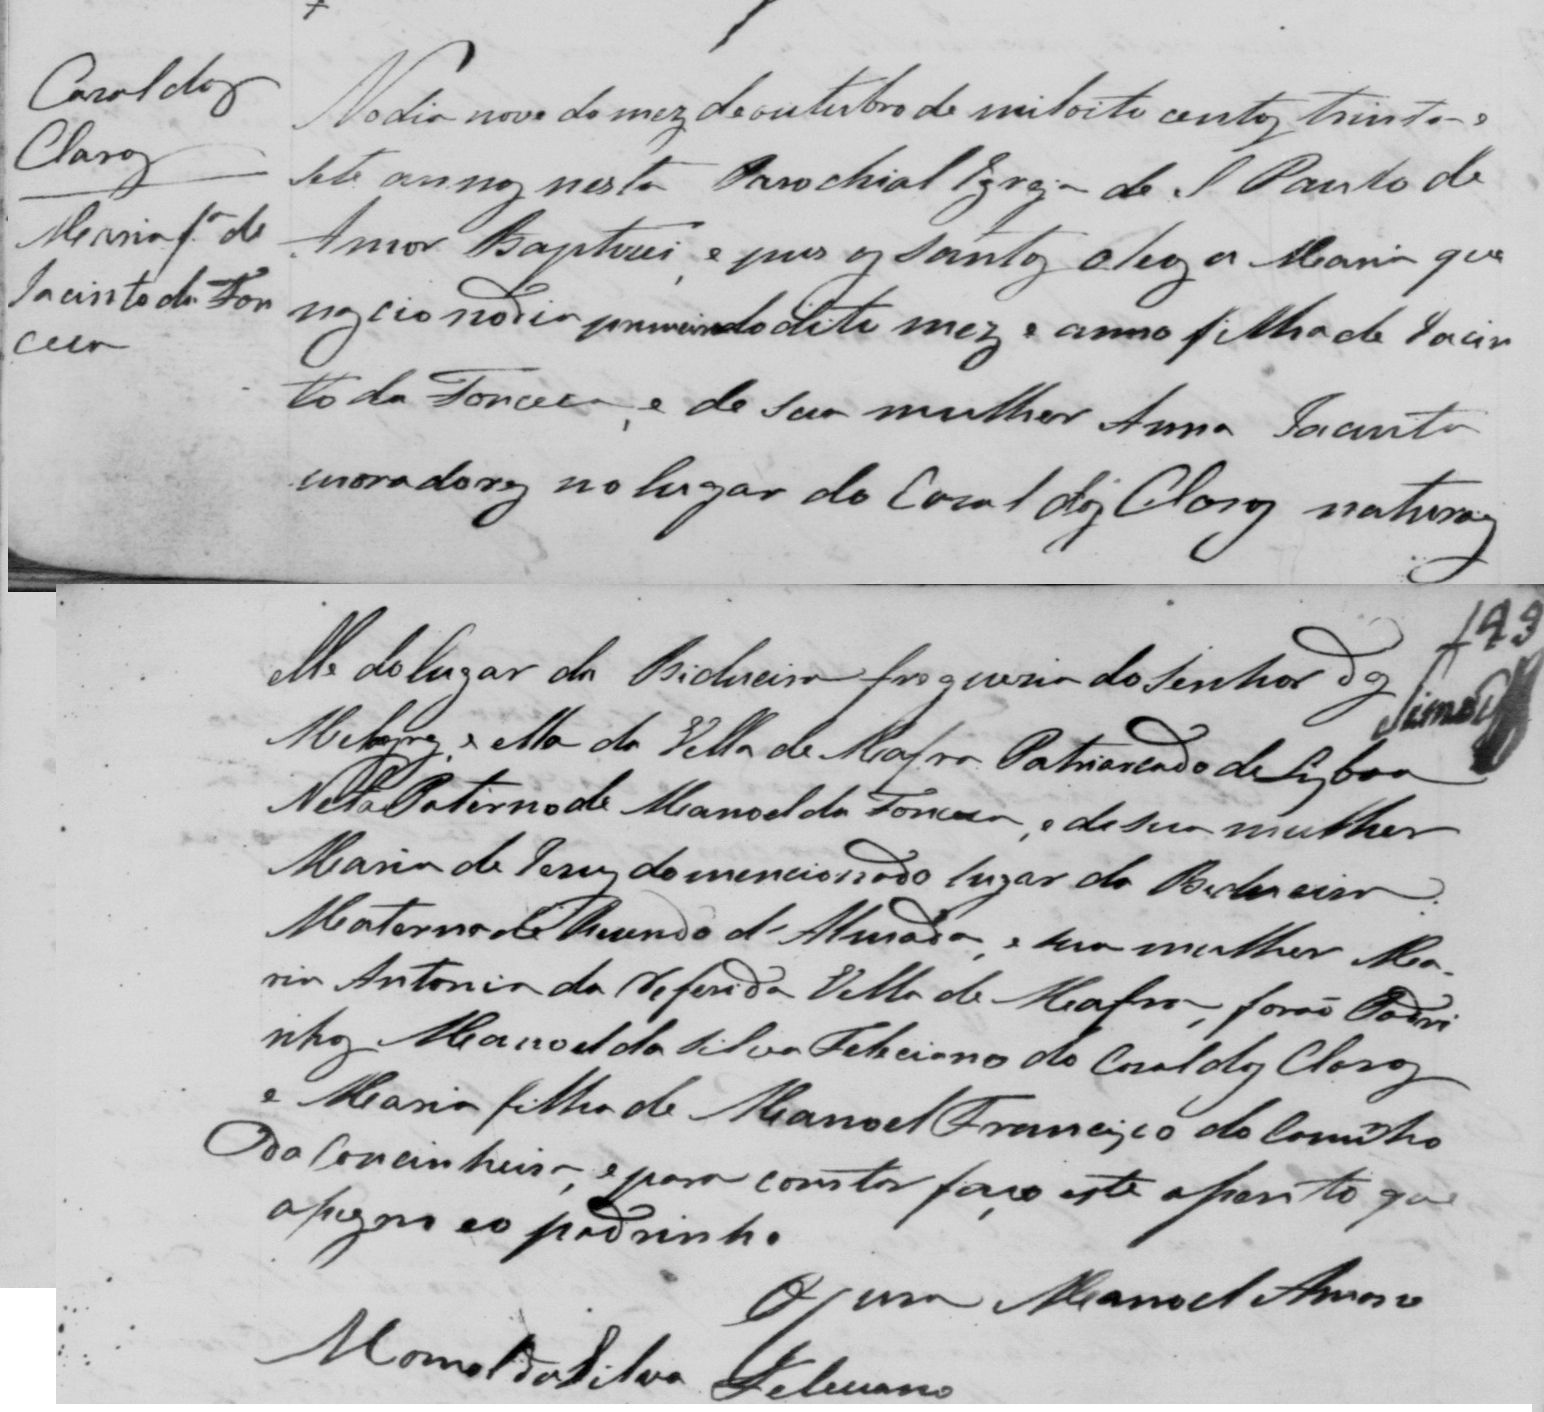 Casal dos
Claros
Maria f.ª de
Jacinto da Fon
ceca
No dia nove do mez de outubro de mil oito centos trinta e
sete annos nesta Parochial Igreja de S Paulo de
Amor Baptizei, e pus os santos oleos a Maria que
nasceio no dia primeiro do dito mez e anno filha de Jacin
to da Fonceca, e de sua mulher Anna Jacinta
moradores no lugar do Casal dos Claros naturaes
193
Simões
elle do lugar da Bidueira freguezia do Senhor dos
Milagres, e ella da Villa de Mafra Patriarcado de Lysboa
Neta Paterno de Manoel da Fonceca, e de sua mulher
Maria de Jesus do mencionado lugar da Bidueira
Materna de d'Almada, e sua mulher Ma-
ria Antonia da referida Villa de Mafra, forão Padri
nhos Manoel da Silva Feleciano do Casal dos Claros
e Maria filha de Manoel Francisco do Cominho
da Concinheira, e para constar faço este aſento que
aſegno eo padrinho
O Cura Manoel Amaro
Manoel da Silva Feleciano